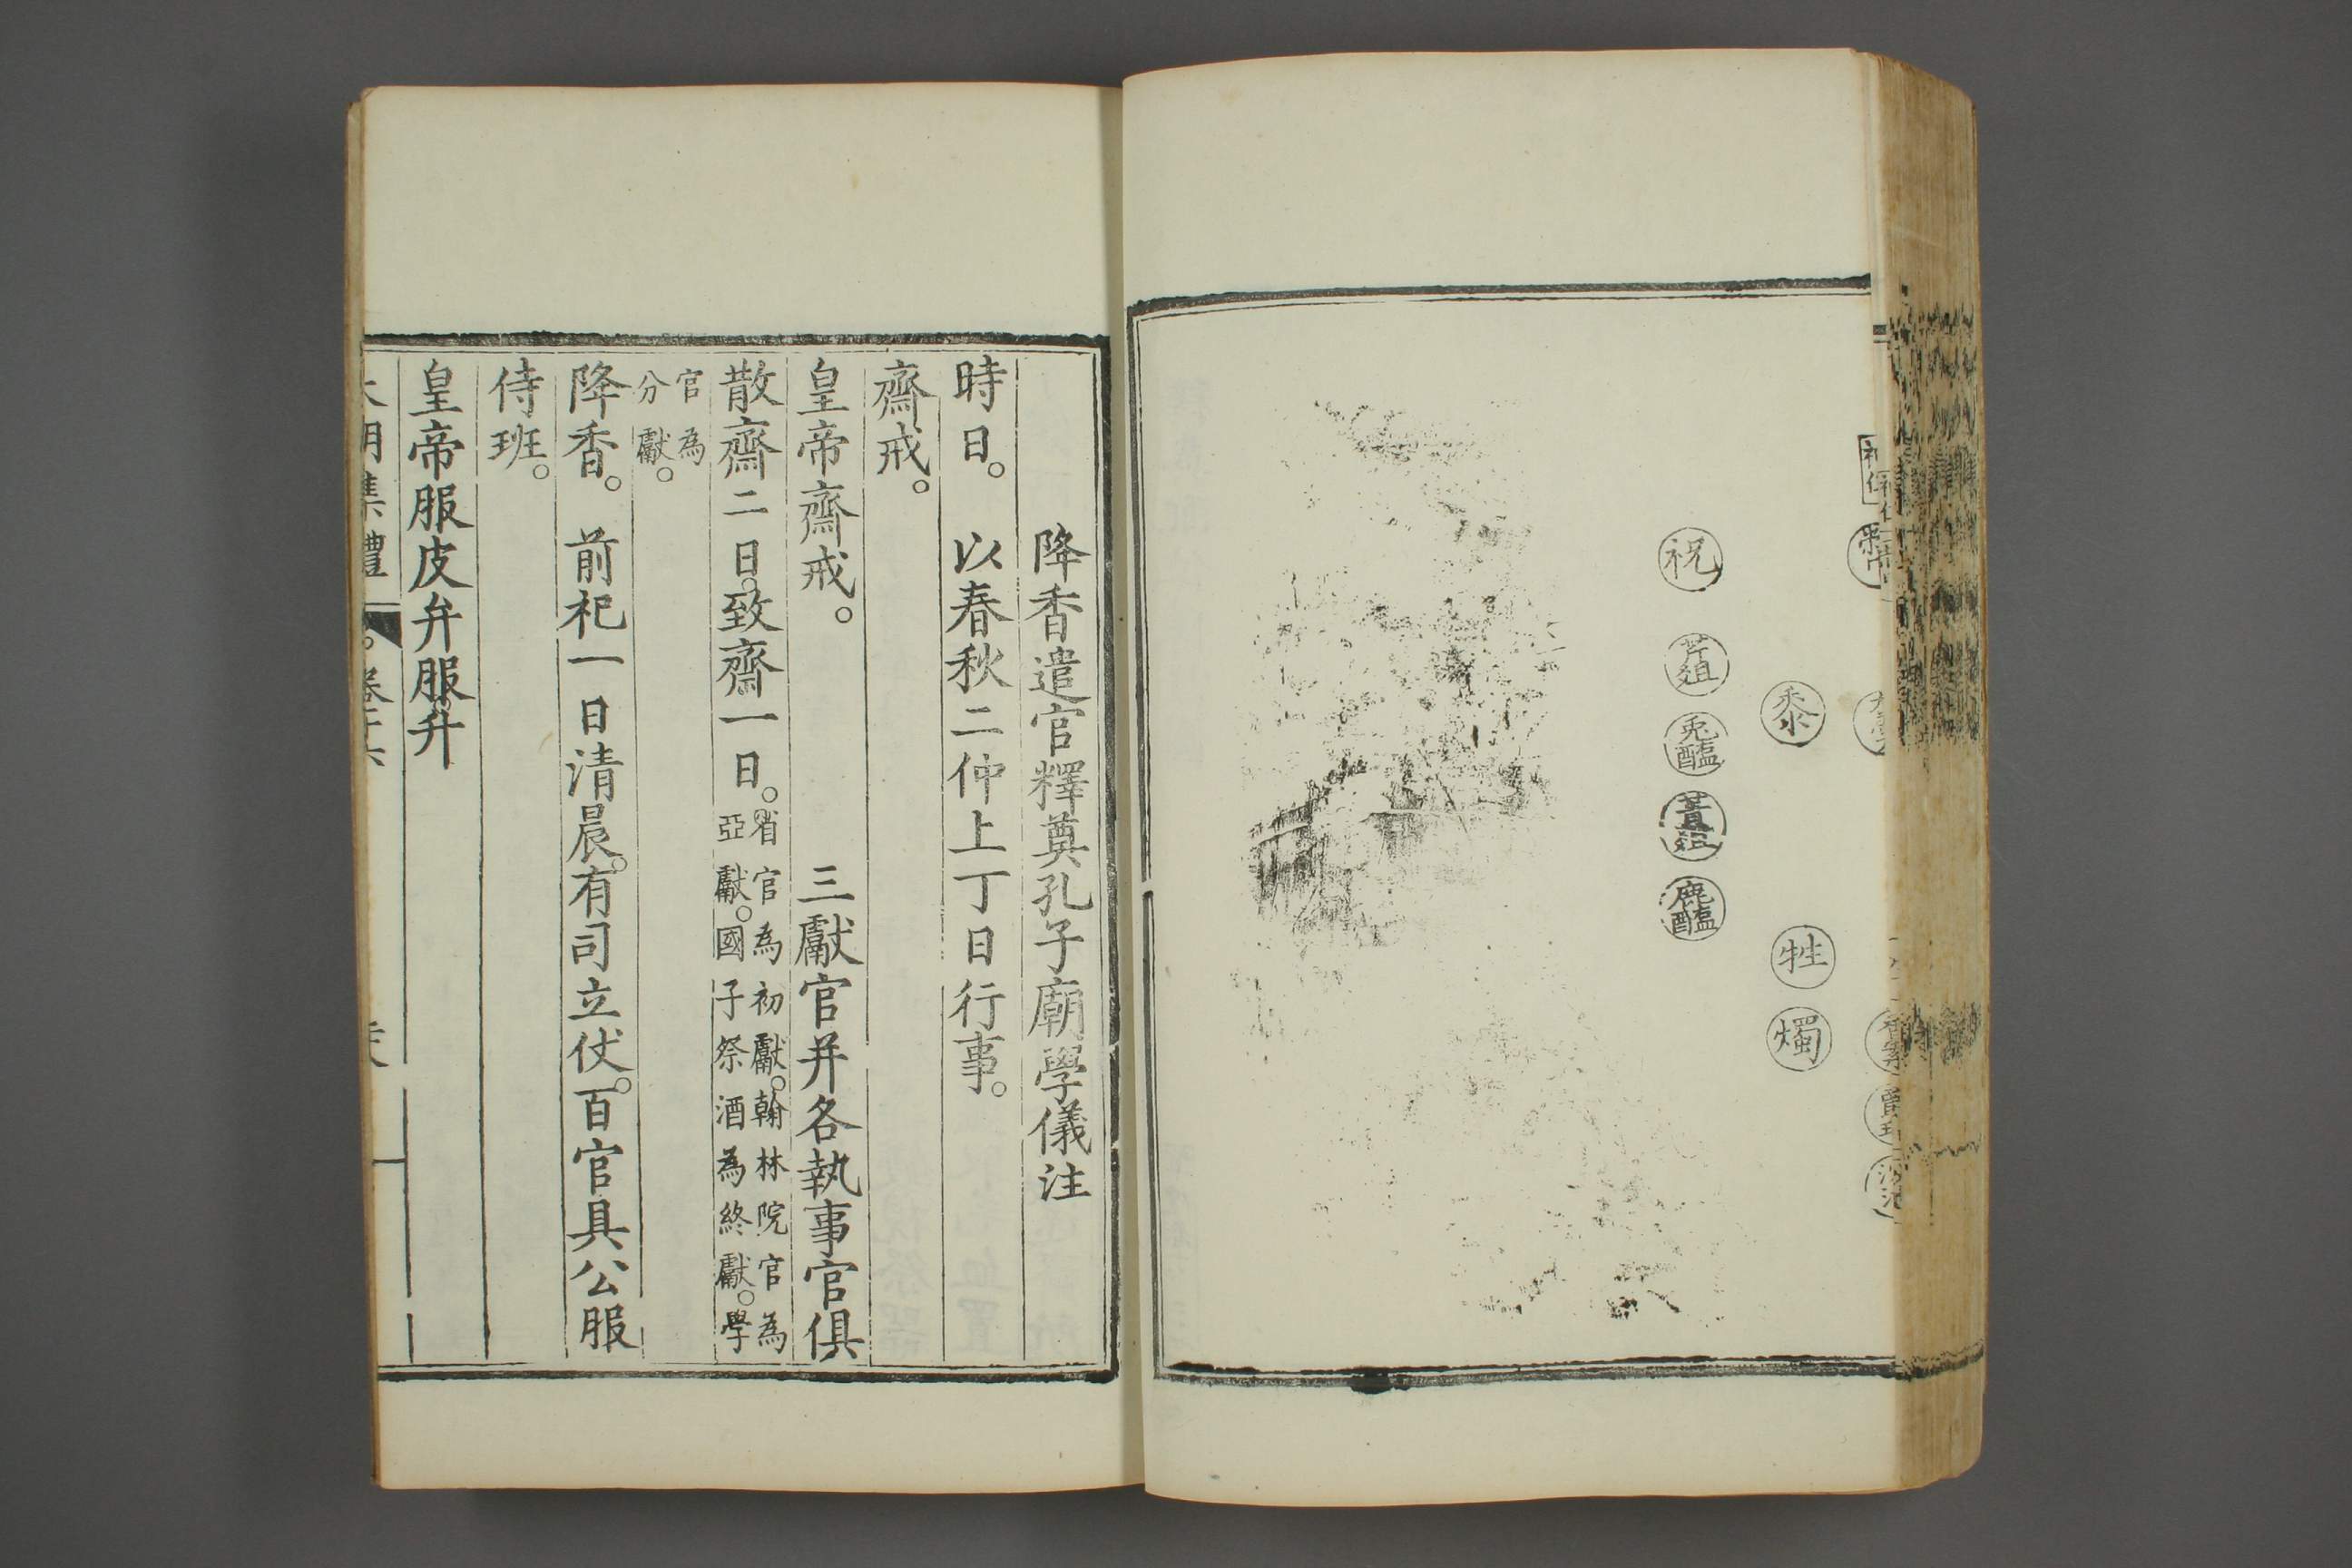 祝
芹菹
兎醢
菁菹
鹿醢
黍
牲
燭
降香遣官釋奠孔子廟學儀注
時日。以春秋二仲上丁日行事。
齋戒。
皇帝齋戒。三獻官并各執事官俱
散齋二日。致齋一日。省官為初獻。翰林院官為
亞獻。國子祭酒為終獻。學
官為
分獻。
降香。前祀一日清晨。有司立仗。百官具公服
侍班。
皇帝服皮弁服。升